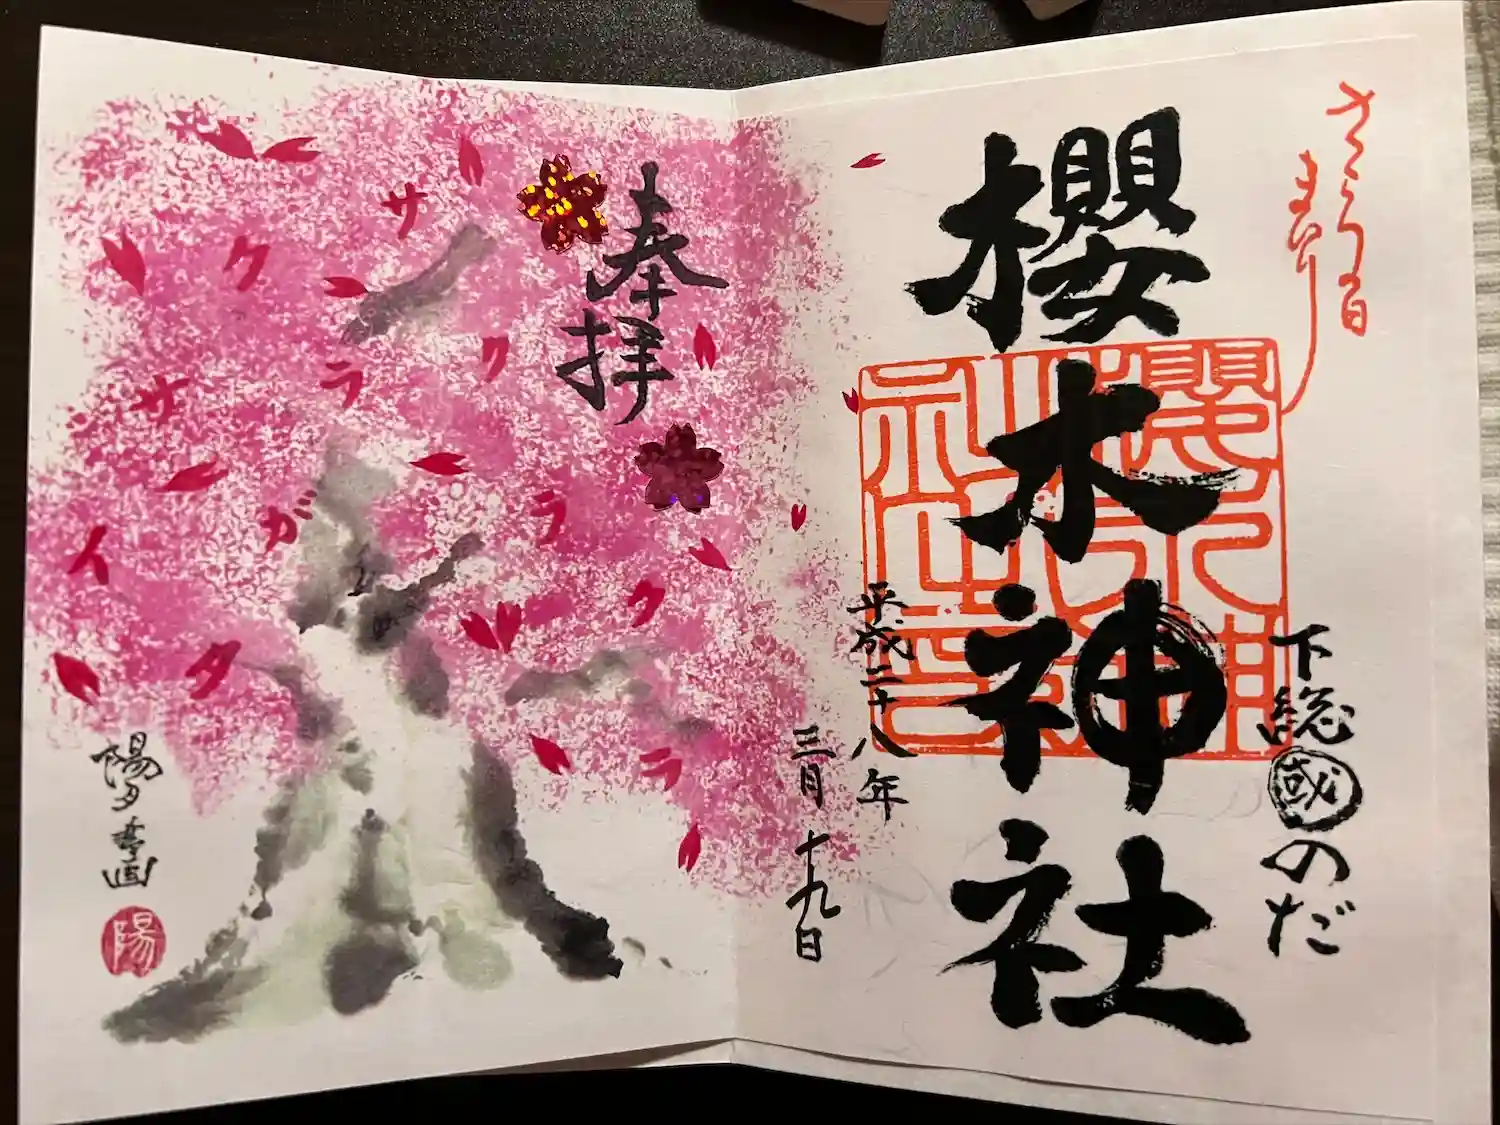 さくらの日
まいり
下総國のだ
櫻木神社
櫻木神社之印
平成二十八年
三月十九日
奉拝
サクラ
ガサイタ
クラ
クラ
陽